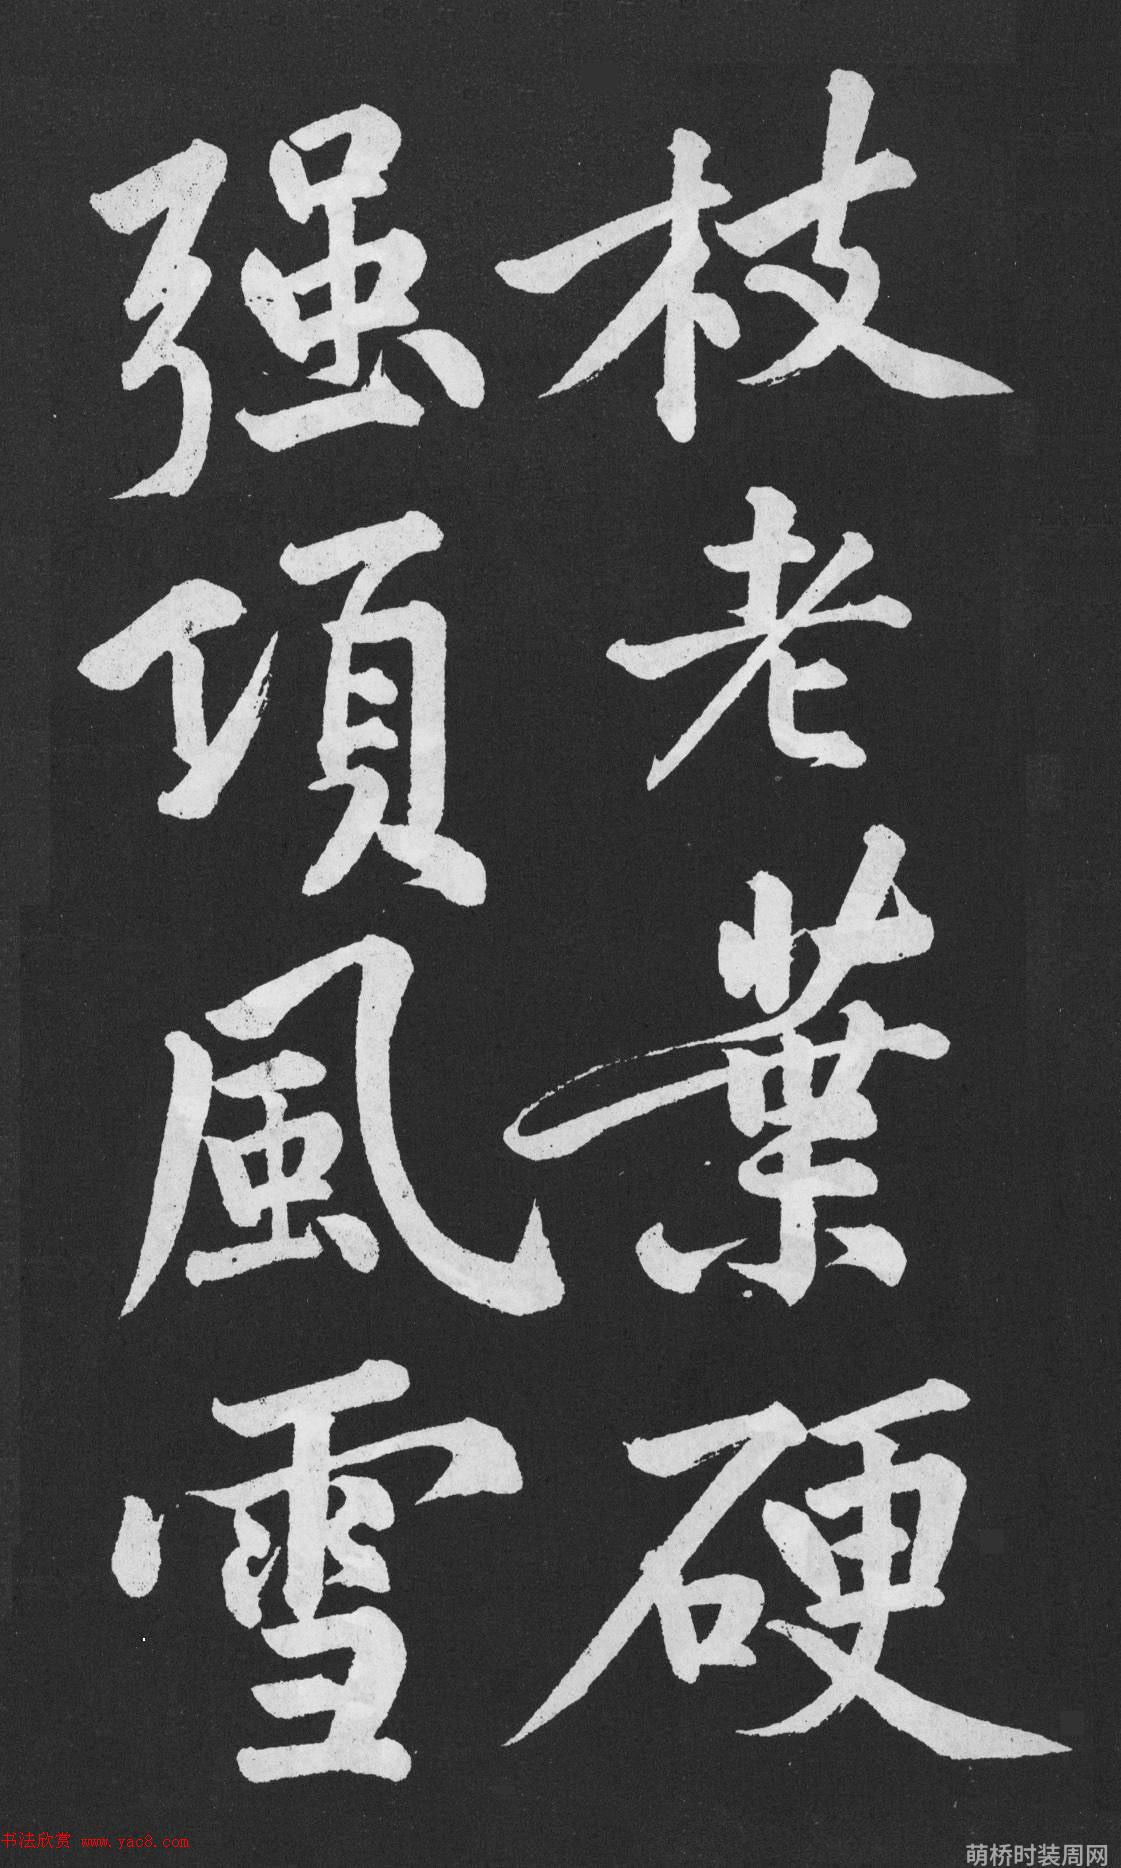 枝老葉硬
强項風雪
书法欣赏 www.yac8.com
萌桥时装周网